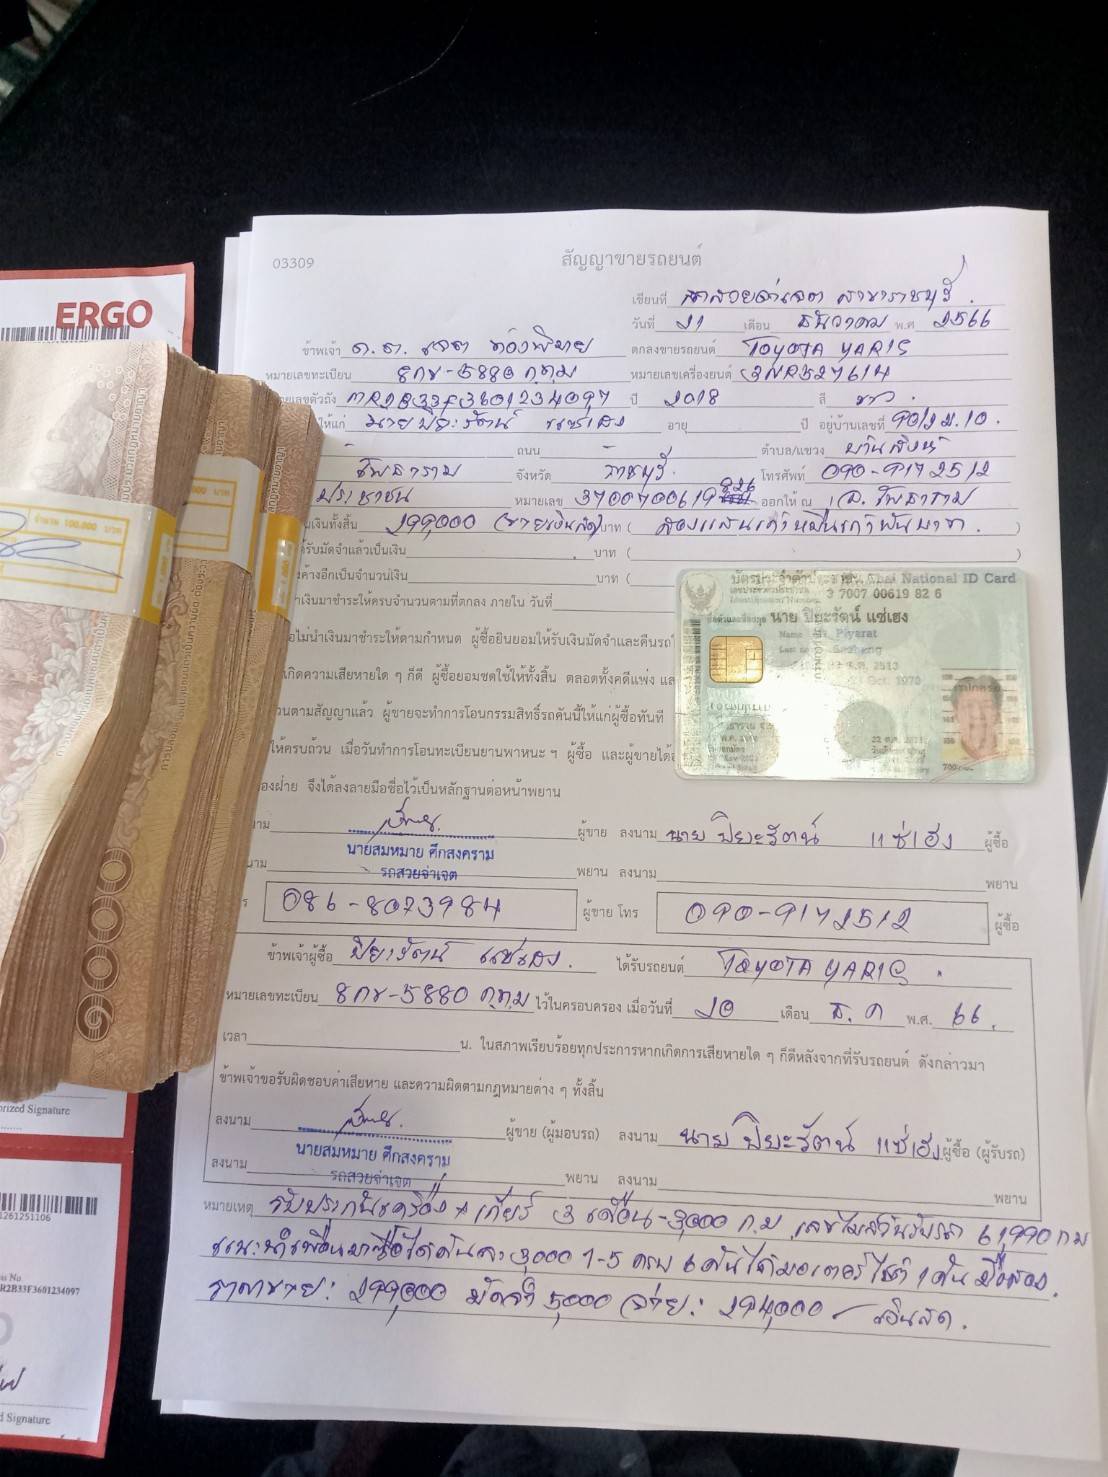 ERGO
03309
สัญญาขายรถยนต์
เขียนที่ รถสวยจ่าเจต สาขาราชบุรี
วันที่ 21 เดือน ธันวาคม พ.ศ 2566
ข้าพเจ้า ด.ต. เจต ตกลงขายรถยนต์ TOYOTA YARIS
หมายเลขทะเบียน 8กข-5880 ก.ท.ม หมายเลขเครื่องยนต์ 3NR527614
เลขตัวถัง MR2B33F3601234097 ปี 2018 สี ขาว
ให้แก่ นายปิยะรัตน์ แซ่เฮง อายุ ปี อยู่บ้านเลขที่ 90/2 ม.10
ถนน ตำบล/แขวง บ้านสิงห์
โพธาราม จังหวัด ราชบุรี โทรศัพท์ 090-9172512
ประชาชน หมายเลข 3700700619826 ออกให้ ณ อ. โพธาราม
เงินทั้งสิ้น 299,000 (ขายเงินสด) บาท ( สองแสนเก้าหมื่นเก้าพันบาท )
รับมัดจำแล้วเป็นเงิน บาท ( )
ค้างอีกเป็นจำนวนเงิน บาท (
เงินมาชำระให้ครบจำนวนตามที่ตกลง ภายใน วันที่
ไม่นำเงินมาชำระให้ตามกำหนด ผู้ซื้อยินยอมให้รับเงินมัดจำและคืนรถ
เกิดความเสียหายใด ๆ ก็ดี ผู้ซื้อยอมชดใช้ให้ทั้งสิ้น ตลอดทั้งคดีแพ่ง
วนตามสัญญาแล้ว ผู้ขายจะทำการโอนกรรมสิทธิ์รถคันนี้ให้แก่ผู้ซื้อทันที
ให้ครบถ้วน เมื่อวันทำการโอนทะเบียนยานพาหนะ ฯ ผู้ซื้อ และผู้ขายได้
จึงได้ลงลายมือชื่อไว้เป็นหลักฐานต่อหน้าพยาน
บัตรประจำตัวประชาชน Thai National ID Card
3 7007 00619 82 6
นาย ปิยะรัตน์ แซ่เฮง
Name Mr. Piyarat
Last name Saeheng
Oct. 1970
ผู้ขาย ลงนาม นาย ปิยะรัตน์ แซ่เฮง ผู้ซื้อ
นายสมหมาย ศึกสงคราม
รถสวยจ่าเจต
พยาน ลงนาม พยาน
086-8073984 ผู้ขาย โทร 090-9172512 ผู้ซื้อ
ข้าพเจ้าผู้ซื้อ ปิยะรัตน์ แซ่เฮง ได้รับรถยนต์ TOYOTA YARIS
หมายเลขทะเบียน 8กข-5880 ก.ท.ม ไว้ในครอบครอง เมื่อวันที่ 20 เดือน ธ.ค พ.ศ. 66
เวลา น. ในสภาพเรียบร้อยทุกประการหากเกิดการเสียหายใด ๆ ก็ดีหลังจากที่รับรถยนต์ ดังกล่าวมา
ข้าพเจ้าขอรับผิดชอบค่าเสียหาย และความผิดตามกฎหมายต่าง ๆ ทั้งสิ้น
ลงนาม ผู้ขาย (ผู้มอบรถ) ลงนาม นาย ปิยะรัตน์ แซ่เฮง ผู้ซื้อ (ผู้รับรถ)
นายสมหมาย ศึกสงคราม
รถสวยจ่าเจต
ลงนาม พยาน ลงนาม พยาน
หมายเหตุ รับประกันเครื่อง + เกียร์ 3 เดือน-3,000 ก.ม เลขไมล์วันรับรถ 61,990 กม
แนะนำเพื่อนมาซื้อได้คันละ 3,000 1-5 ครบ 6 คันได้มอเตอร์ไซค์ 1 คัน มือสอง
ราคาขาย: 299,000 มัดจำ 5,000 จ่าย: 294,000 เงินสด.
1000
จำนวน 100,000 บาท
orized Signature
1261251106
is No.
R2B33F3601234097
d Signature